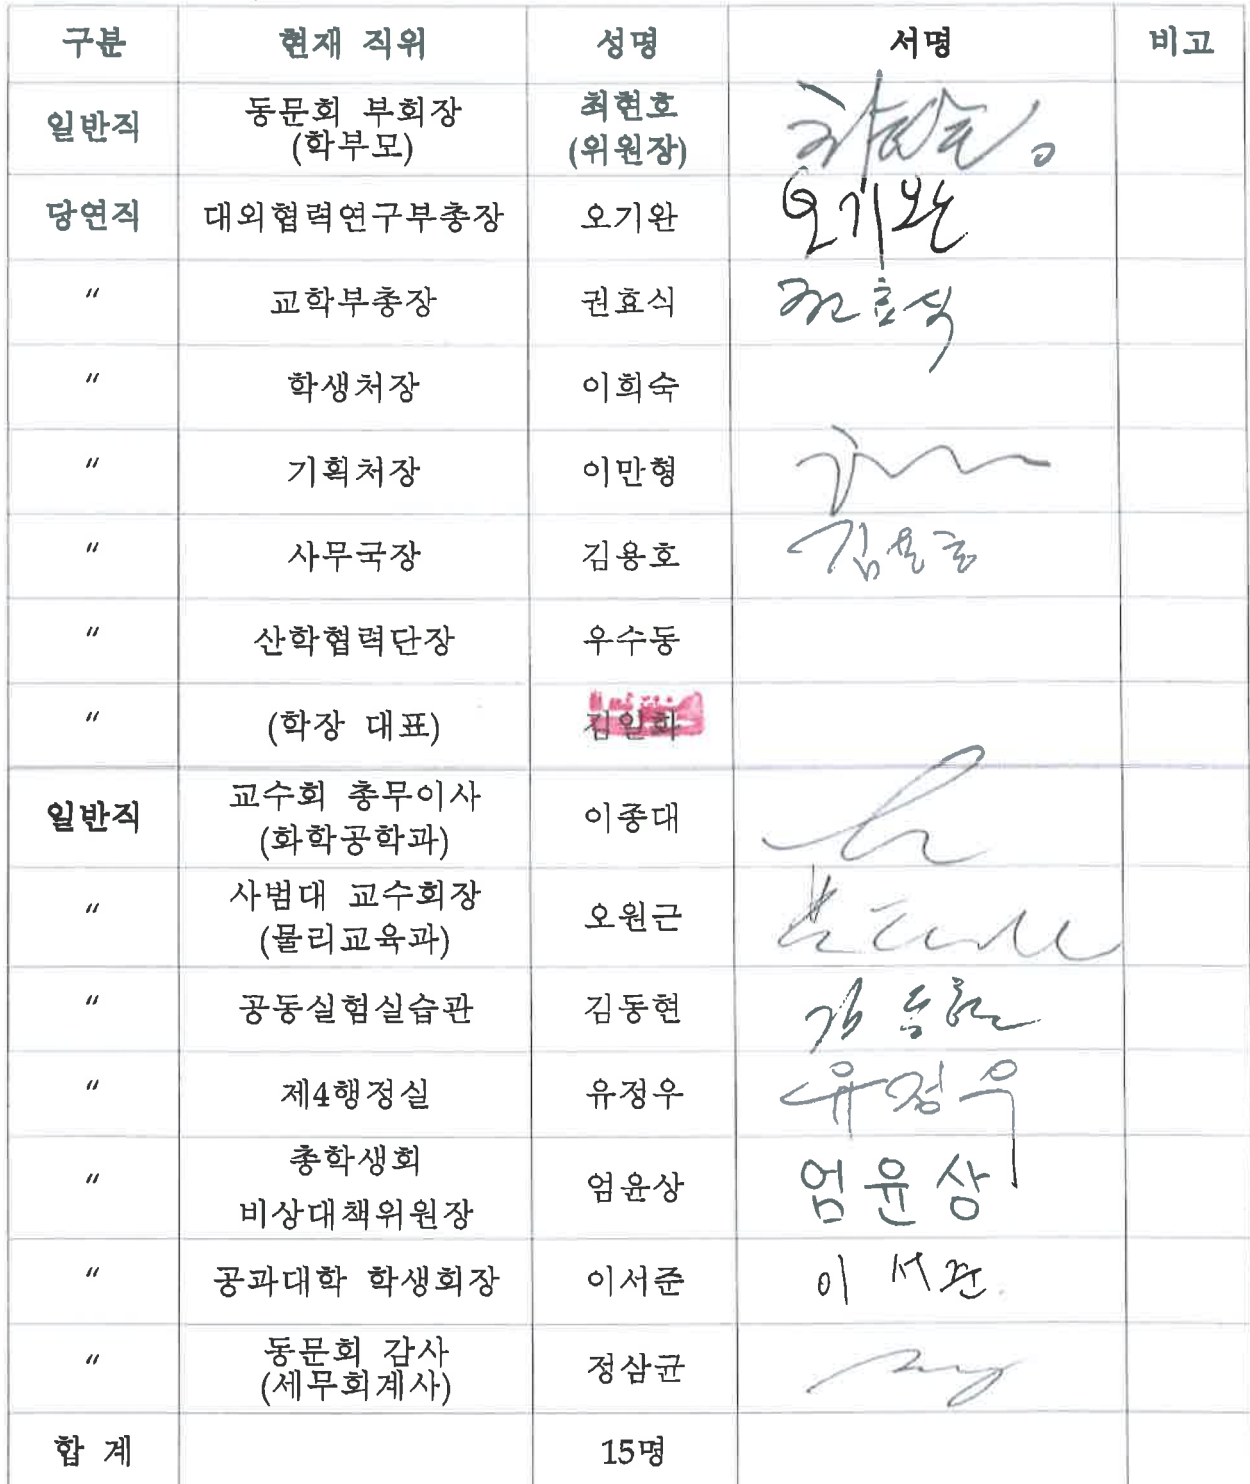 구분 현재 직위 성명 서명 비고
일반직 동문회 부회장 최현호
(학부모) (위원장)
당연직 대외협력연구부총장 오기완 오기완
〃 교학부총장 권효식 권효식
〃 학생처장 이희숙
〃 기획처장 이만형
〃 사무국장 김용호 김용호
〃 산학협력단장 우수동
〃 (학장 대표) 김일화
일반직 교수회 총무이사 이종대
(화학공학과)
〃 사범대 교수회장 오원근
(물리교육과)
〃 공동실험실습관 김동현 김동현
〃 제4행정실 유정우 유정우
〃 총학생회 엄윤상 엄윤상
비상대책위원장
〃 공과대학 학생회장 이서준 이서준
〃 동문회 감사 정삼균
(세무회계사)
합 계 15명